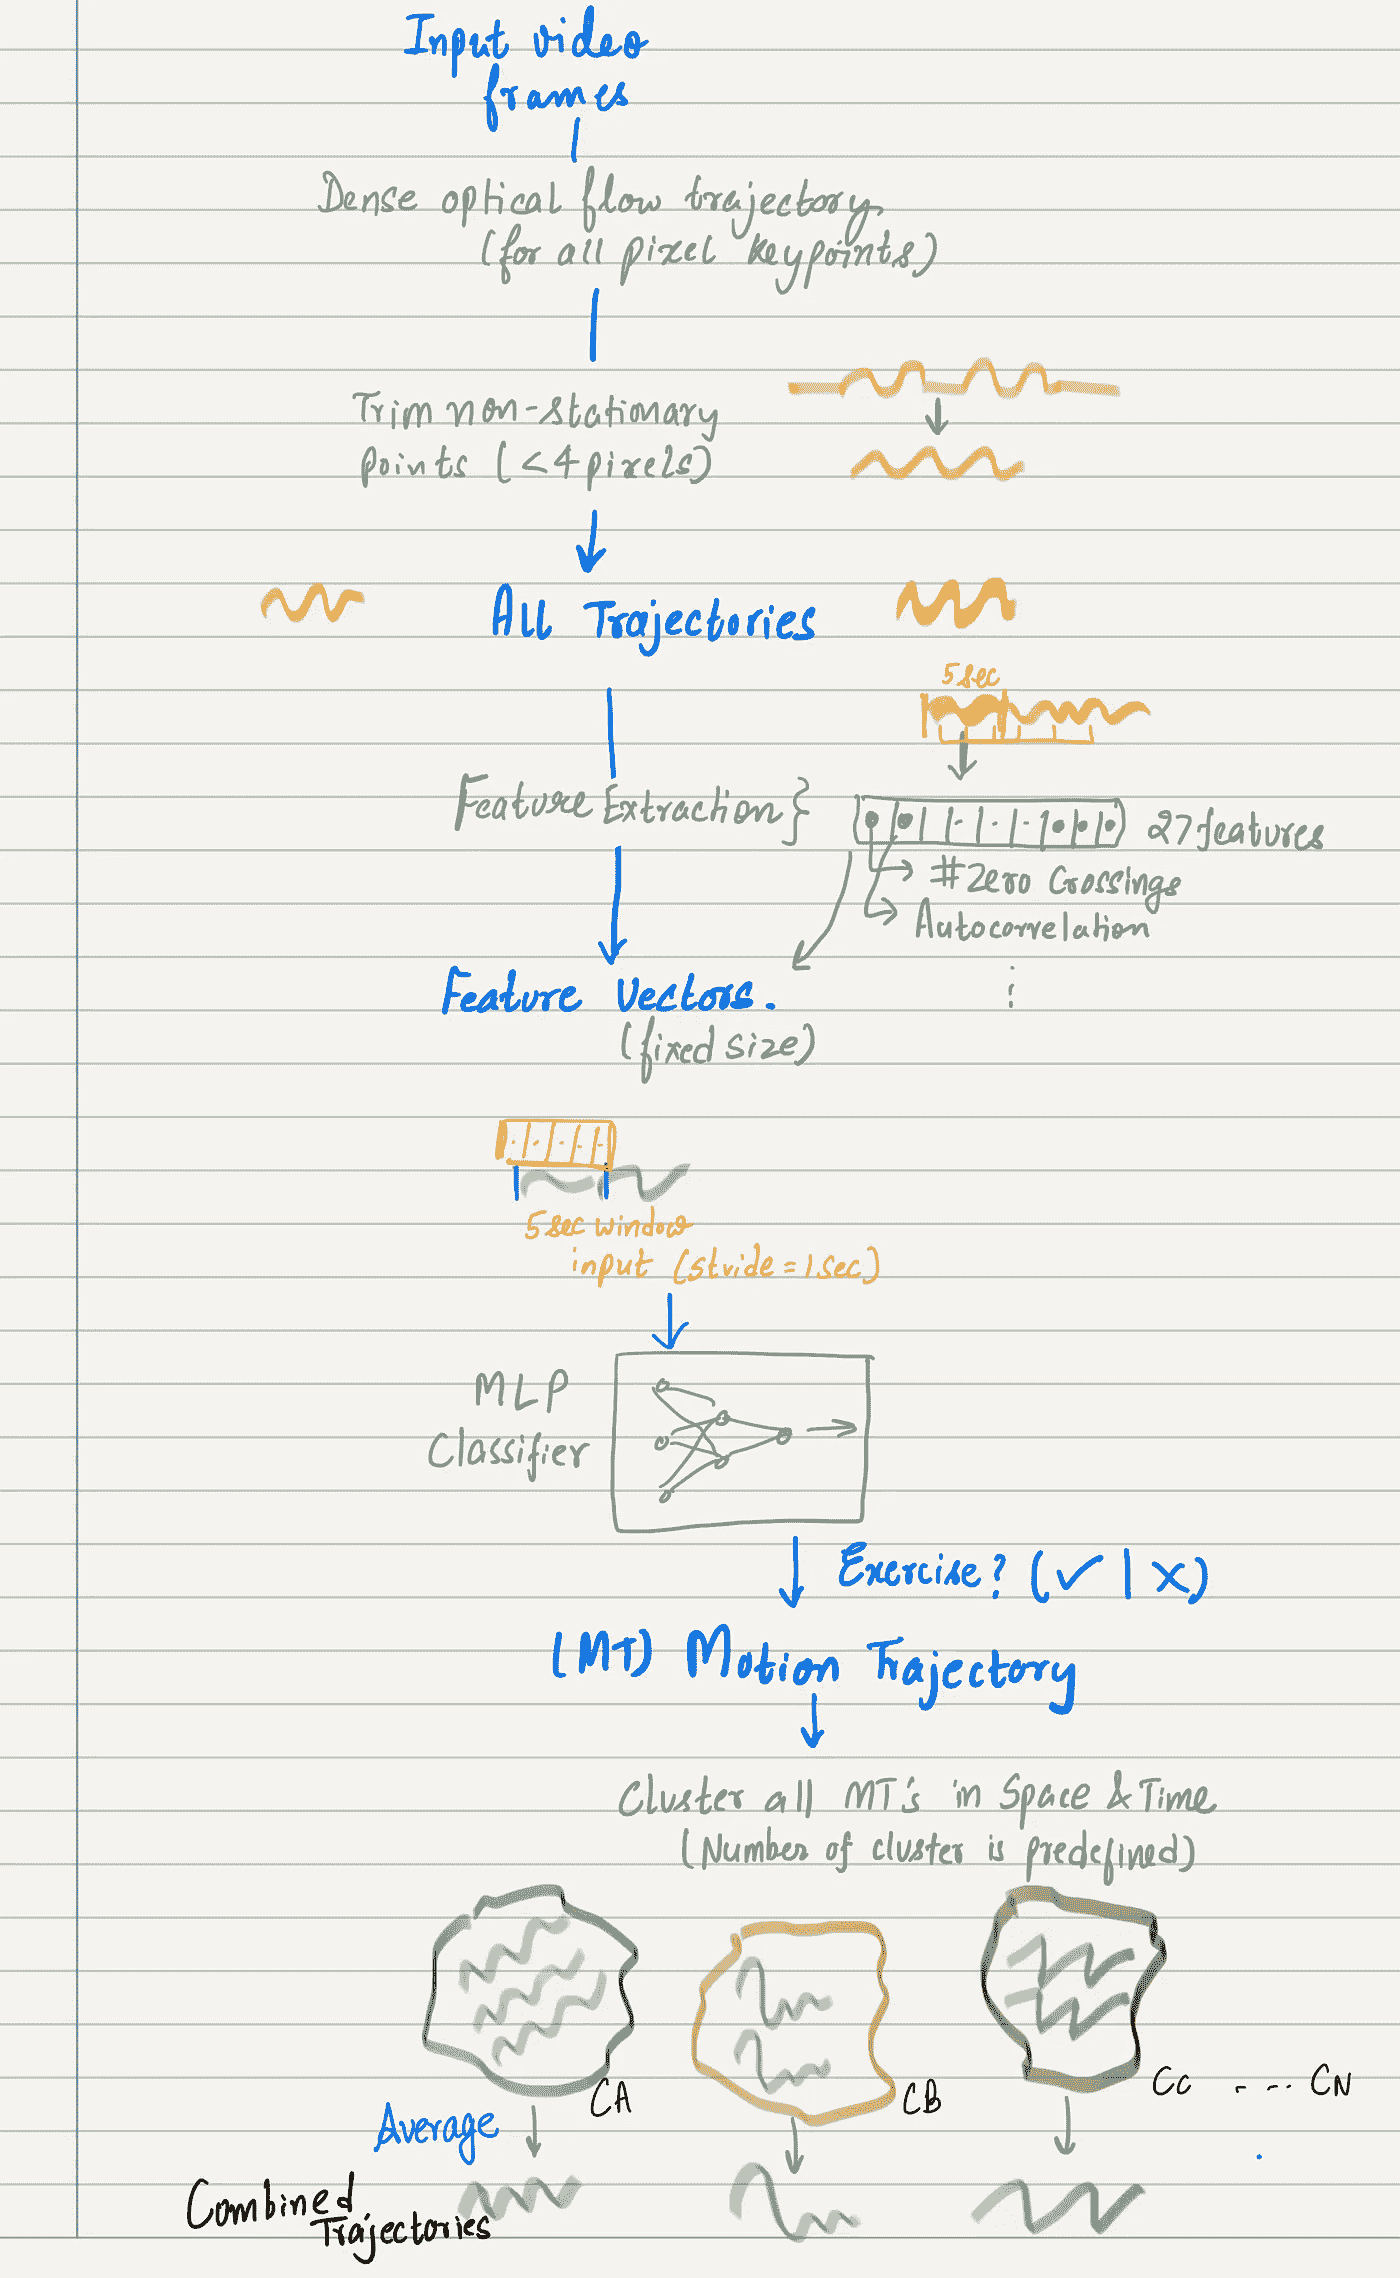 Input video
frames
Dense optical flow trajectory
(for all pixel keypoints)
Trim non-stationary
points (<4 pixels)
All Trajectories
5 sec
Feature Extraction }
27 features
#Zero Crossings
Autocorrelation
Feature Vectors.
(fixed size)
5 sec window
input (stride = 1 sec)
MLP
Classifier
Exercise? (✓ | ×)
(MT) Motion Trajectory
Cluster all MT's in Space & Time
(Number of cluster is predefined)
CA
CB
CC .... CN
Average
Combined
Trajectories